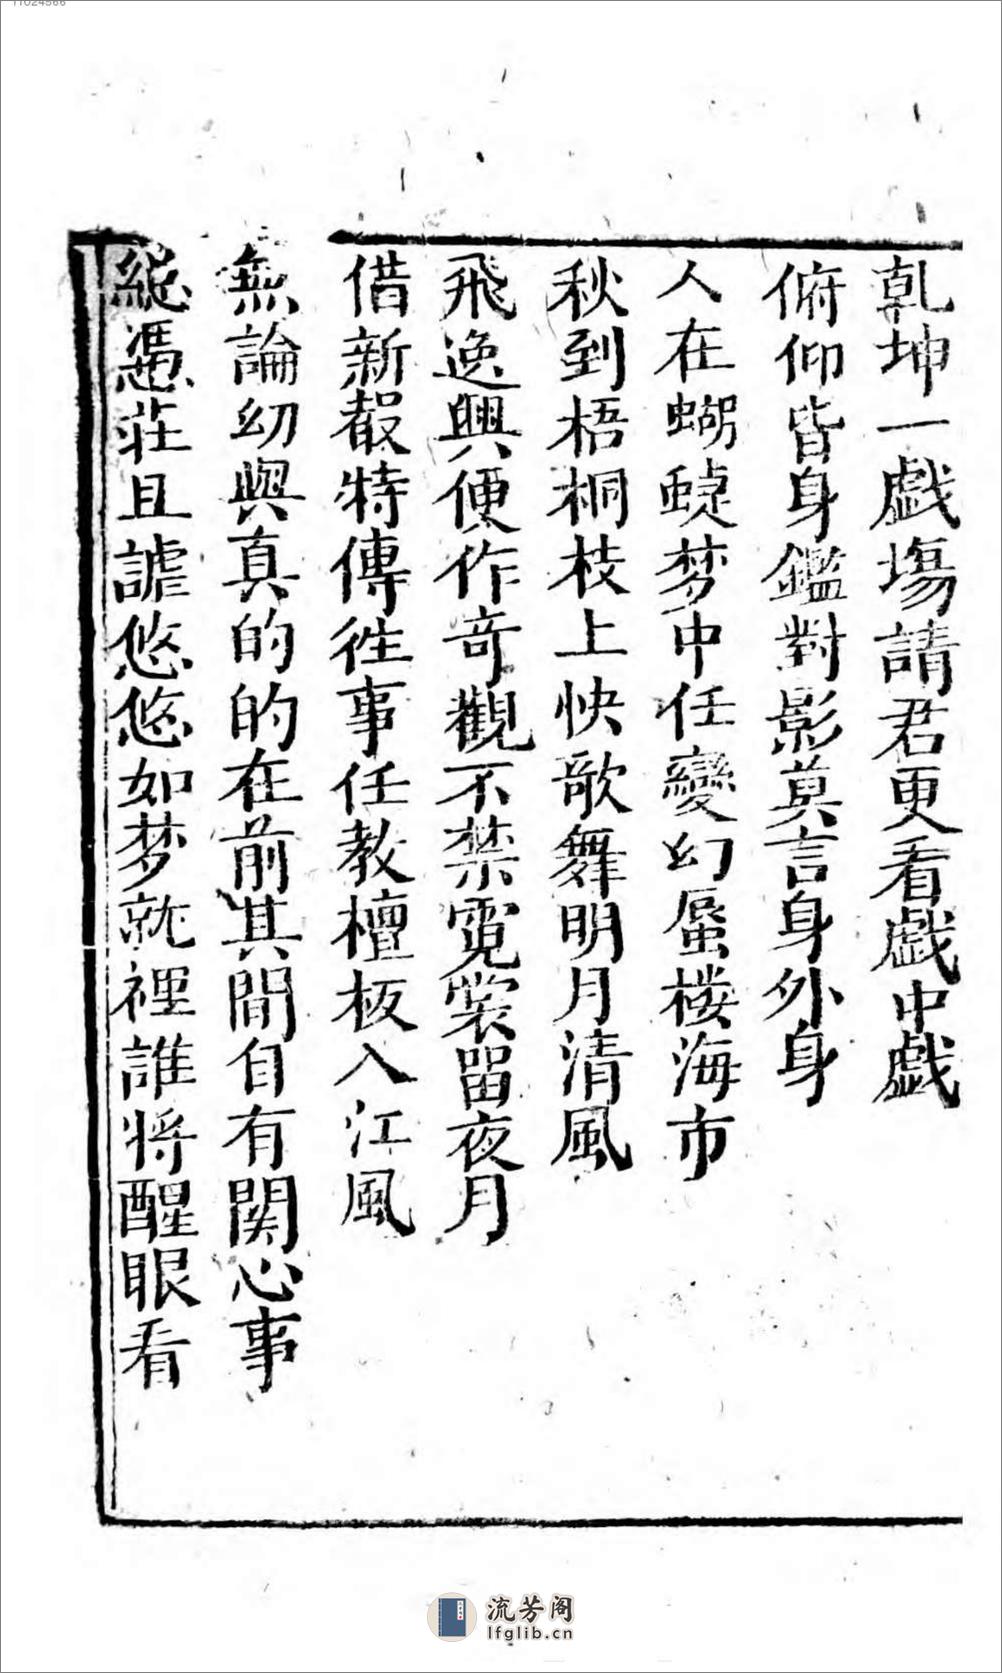 11024566
乾坤一戯塲請君更看戯中戯
俯仰皆身鑑對影莫言身外身
人在蝴蝶梦中任變幻蜃楼海市
秋到梧桐枝上快歌舞明月清風
飛逸興便作竒觀不禁霓裳留夜月
借新聲特傳徃事任教檀板入江風
無論幻與真的的在前其間自有関心事
縱憑莊且謔悠悠如梦就裡誰将醒眼看
流芳阁
lfglib.cn